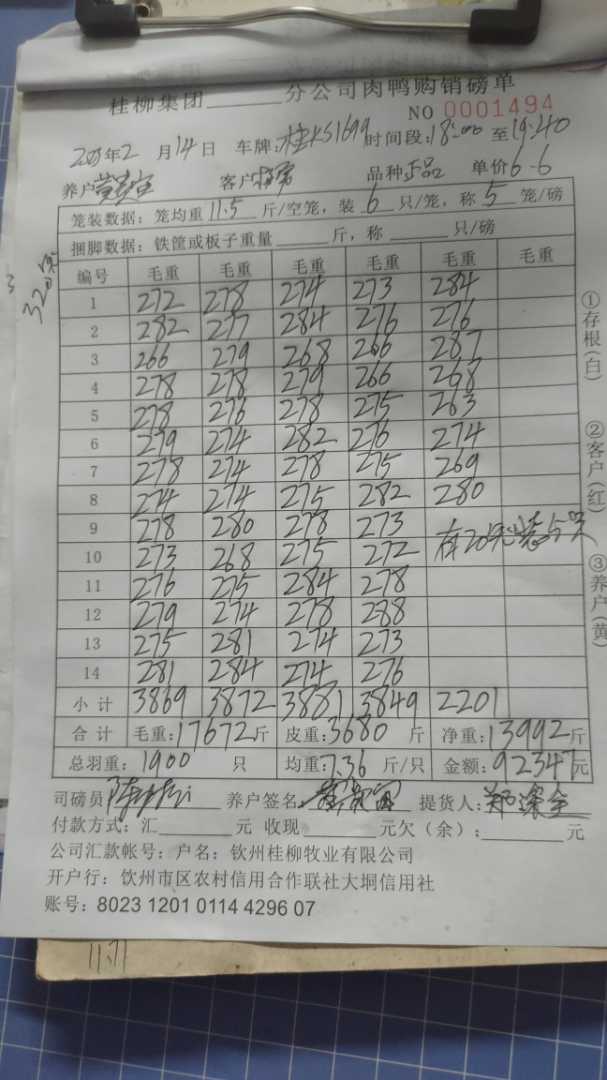 桂柳集团______分公司肉鸭购销磅单
NO 0001494
2023年2月14日 车牌:桂KS1699 时间段:18:00至19:40
养户 客户 品种 正品 单价6.6
笼装数据: 笼均重 11.5 斤/空笼, 装 6 只/笼, 称 5 笼/磅
捆脚数据: 铁筐或板子重量______斤, 称______只/磅
320笼
编号 毛重 毛重 毛重 毛重 毛重 毛重
1 272 278 274 273 284
2 282 277 284 276 276
3 266 279 268 266 287
4 278 278 279 266 268
5 278 276 278 275 263
6 279 274 282 276 274
7 278 274 278 275 269
8 274 274 275 282 280
9 278 280 278 273
10 273 268 275 272 有20笼装5只
11 276 275 284 278
12 279 274 278 288
13 275 281 274 273
14 281 284 274 276
小计 3869 3872 3881 3849 2201
合计 毛重:17672斤 皮重:3680 斤 净重:13992斤
总羽重: 1900 只 均重:7.36 斤/只 金额:92347元
司磅员 养户签名 提货人:
付款方式: 汇______元 收现______元欠(余):______元
公司汇款帐号: 户名: 钦州桂柳牧业有限公司
开户行: 钦州市区农村信用合作联社大垌信用社
账号: 8023 1201 0114 4296 07
①存根(白)
②客户(红)
③养户(黄)
11.71